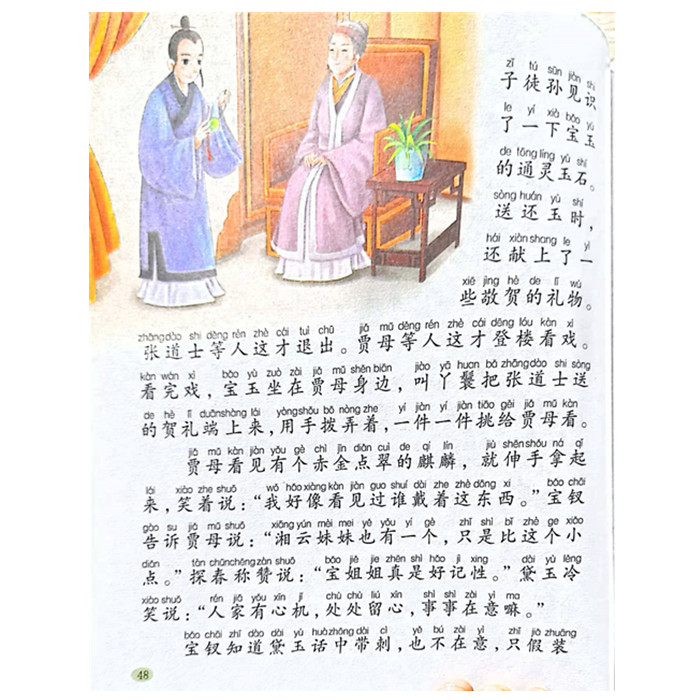 zǐ tú sūn jiàn shi
子徒孙见识
le yí xià bǎo yù
了一下宝玉
de tōng líng yù shí
的通灵玉石。
sòng huán yù shí
送还玉时，
hái xiàn shang le yì
还献上了一
xiē jìng hè de lǐ wù
些敬贺的礼物。
zhāng dào shi děng rén zhè cái tuì chū jiǎ mǔ děng rén zhè cái dēng lóu kàn xì
张道士等人这才退出。贾母等人这才登楼看戏。
kàn wán xì bǎo yù zuò zài jiǎ mǔ shēn biān jiào yā huan bǎ zhāng dào shi sòng
看完戏，宝玉坐在贾母身边，叫丫鬟把张道士送
de hè lǐ duān shàng lái yòng shǒu bō nòng zhe yí jiàn yí jiàn tiāo gěi jiǎ mǔ kàn
的贺礼端上来，用手拨弄着，一件一件挑给贾母看。
jiǎ mǔ kàn jiàn yǒu gè chì jīn diǎn cuì de qí lín jiù shēn shǒu ná qǐ
贾母看见有个赤金点翠的麒麟，就伸手拿起
lái xiào zhe shuō wǒ hǎo xiàng kàn jiàn guo shuí dài zhe zhè dōng xi bǎo chāi
来，笑着说：“我好像看见过谁戴着这东西。”宝钗
gào su jiǎ mǔ shuō xiāng yún mèi mei yě yǒu yí gè zhǐ shì bǐ zhè ge xiǎo
告诉贾母说：“湘云妹妹也有一个，只是比这个小
diǎn tàn chūn chēng zàn shuō bǎo jiě jie zhēn shì hǎo jì xing dài yù lěng
点。”探春称赞说：“宝姐姐真是好记性。”黛玉冷
xiào shuō rén jiā yǒu xīn jī chù chù liú xīn shì shì zài yì ma
笑说：“人家有心机，处处留心，事事在意嘛。”
bǎo chāi zhī dào dài yù huà zhōng dài cì yě bú zài yì zhǐ jiǎ zhuāng
宝钗知道黛玉话中带刺，也不在意，只假装
48